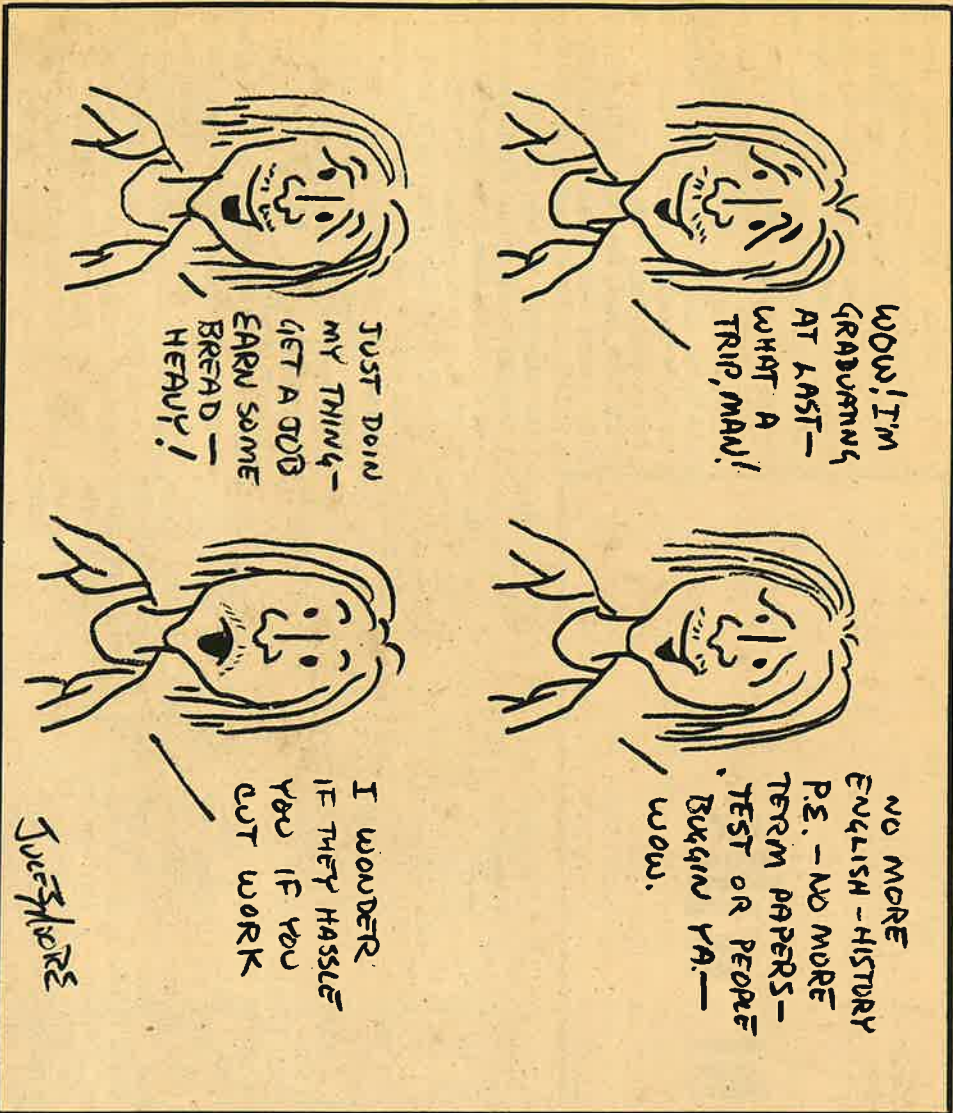 WOW! I'M
GRADUATING
AT LAST—
WHAT A
TRIP, MAN!
NO MORE
ENGLISH - HISTORY
P.E. — NO MORE
TERM PAPERS—
TEST OR PEOPLE
BUGGIN YA.—
WOW.
JUST DOIN
MY THING—
GET A JOB
EARN SOME
BREAD —
HEAVY!
I WONDER
IF THEY HASSLE
YOU IF YOU
CUT WORK
JULES MOORE